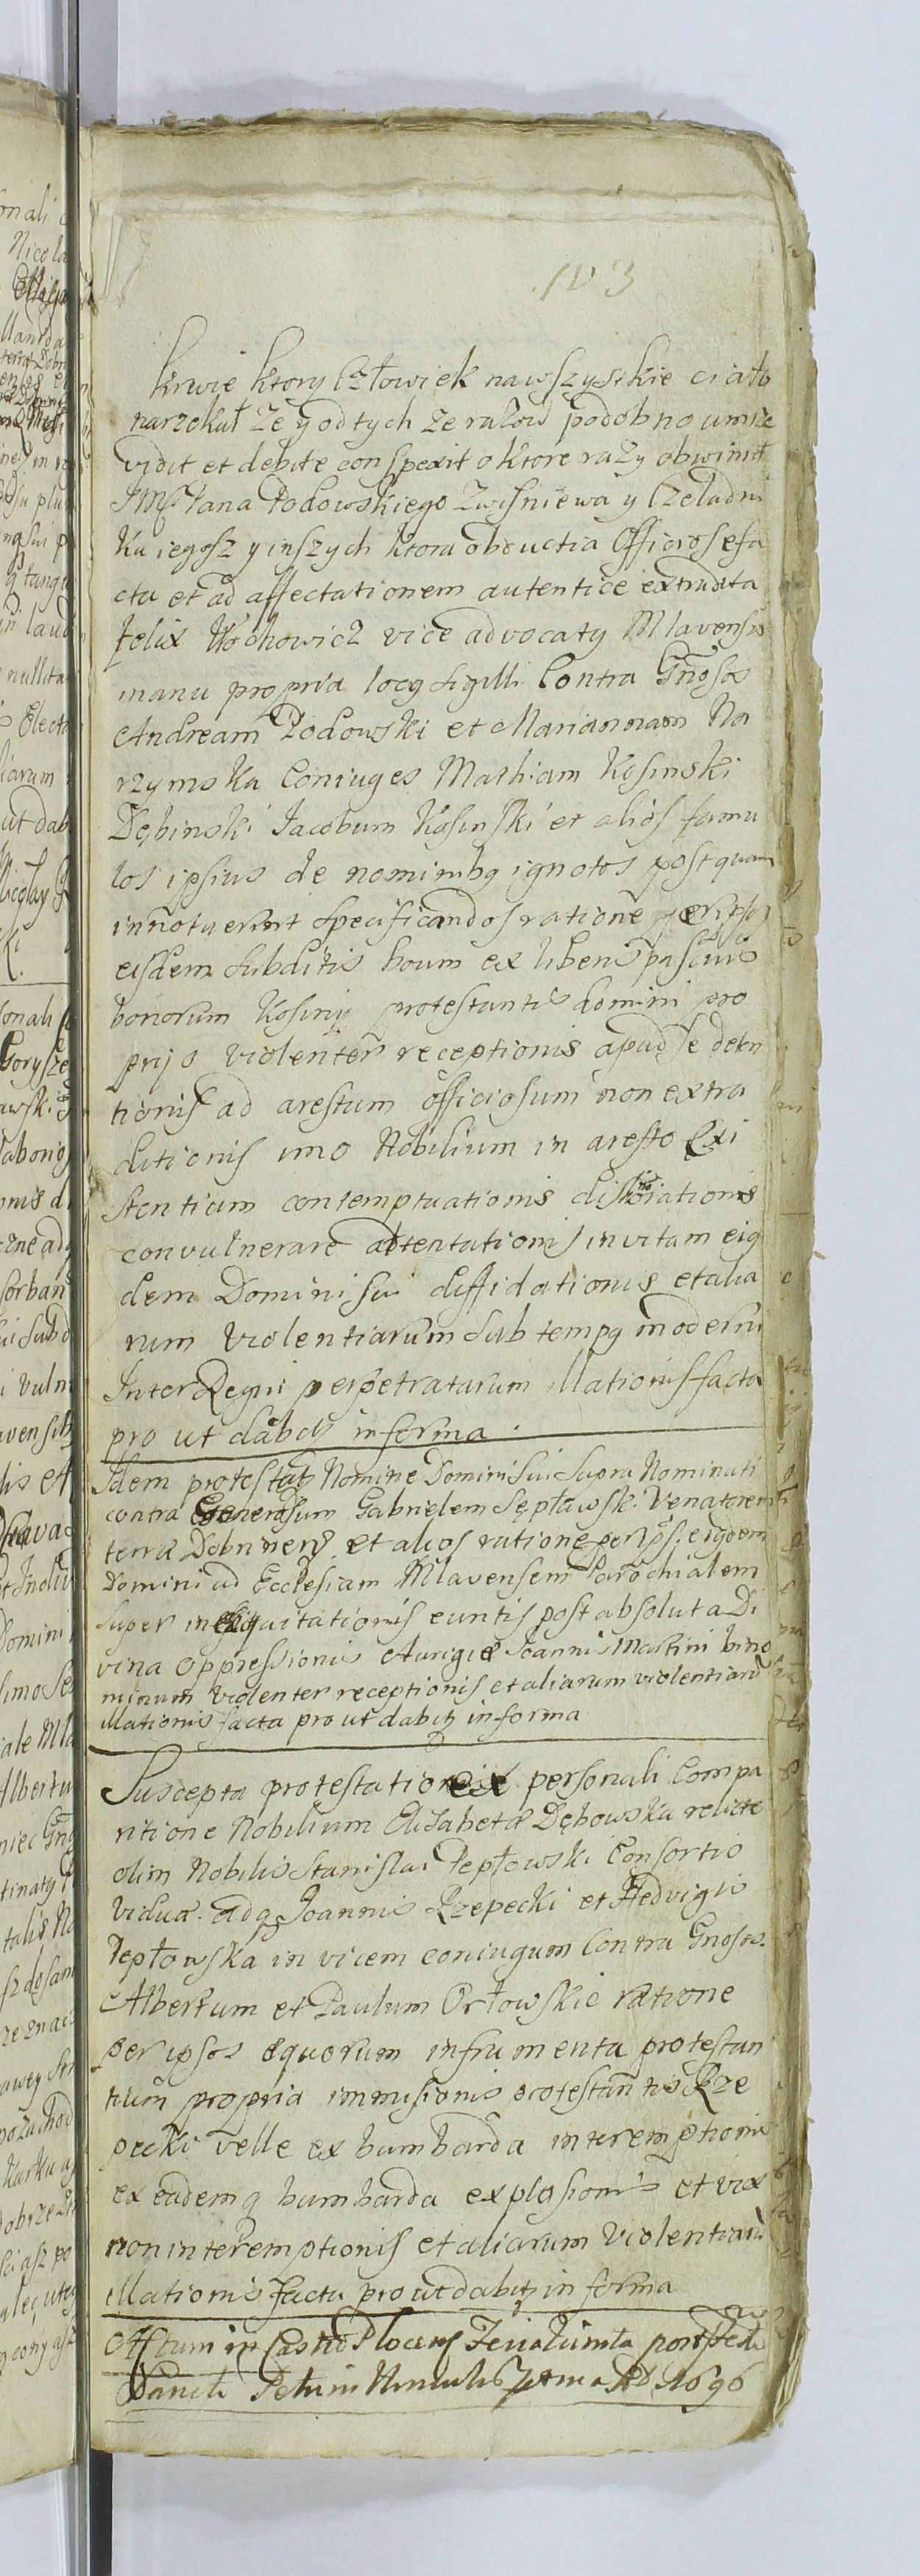 103
krwie ktory człowiek nawszystkie ciało
narzekał że y od tych że razow podobno umrze
vidit et debite conspexit o ktore razy obwinił
JMſ Pana Podowskiego zwisniewa y Czeladni
ka iegosz y inszych ktora obductia Officiose fa
cta et ad affectationem autentice extradita
Felix Wochowicz vice advocatq Mlavensis
manu propria locq sigilli Contra Gnosos
Andream Podowski et Mariannam Na
rzymska Coniuges Mathiam Kosinski
Dębinski Jacobum Kosinski et alios famu
los ipsius de nominibq ignotos postquam
innotuerint specificandos ratione per ipsos
eisdem subditis boum ex liberis pascuis
bonorum Kosiny protestantis domini pro
prijs violenter receptionis apud se deten
tionis ad arestum officiosum non extra
ditionis imo Nobilium in aresto Exi
stentium contemptuationis dishonorationis
convulnerare attentationis in vitam eiq
dem Domini sui diffidationis et alia
rum violentiarum sub tempq moderni
InterRegni perpetratarum illationis facta
pro ut dabitr in forma.
Idem protestatr Nomine Domini sui supra Nominati
contra Generosum Gabrielem Sępławski Venatorem
terra Dobrinens et alios ratione per ipsos eiqdem
Domini ad Ecclesiam Mlavensem Parochialem
super inequitationis euntis post absoluta Di
vina oppressionis Aurigae Joannis Martini bino
minum violenter receptionis et aliarum violentiarū
illationis facta pro ut dabitr in forma
Suscepta protestatio ex personali Compa
ritione Nobilium Elisabetae Dębowska relictae
olim Nobilis Stanislai Pepłowski Consortis
Viduae adq Joannis Rzepecki et Hedvigis
Pepłowska in vicem coniugum Contra Gnosos
Albertum et Paulum Orłowskie ratione
per ipsos equorum in frumenta protestan
tium propria immisionis protestantis Rze
pecki velle ex bumbarda interemptionis
ex eademq bumbarda explosionis et vix
non interemptionis et aliarum violentiarū
illationis facta pro ut dabitr in forma
Actum in Castro Plocens Feria quinta post festū
Sancti Petri in Vinculis proxima AD 1696